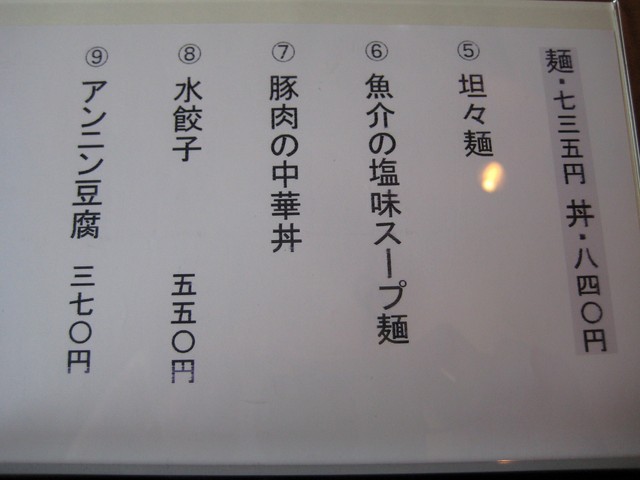 麺・七三五円 丼・八四〇円
⑤ 坦々麺
⑥ 魚介の塩味スープ麺
⑦ 豚肉の中華丼
⑧ 水餃子 五五〇円
⑨ アンニン豆腐 三七〇円